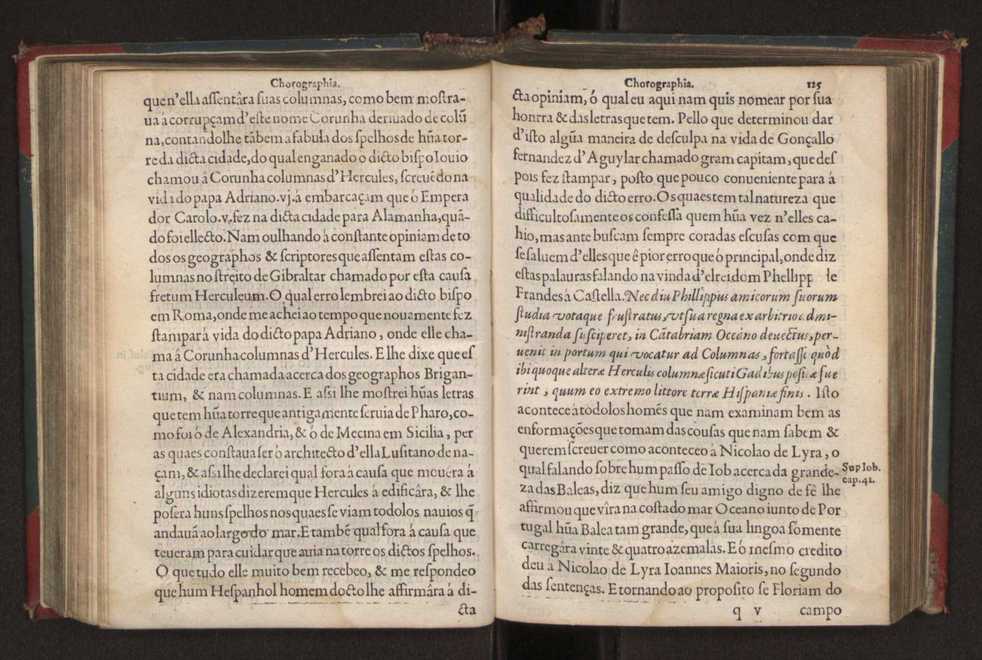 Chorographia.
que n'ella assentâra suas columnas, como bem mostra-
ua á corrupçam d'este nome Corunha deriuado de colũ
na, contandolhe tãbem a fabula dos spelhos de hũa tor-
re da dicta cidade, do qual enganado o dicto bispo Iouio
chamou â Corunha columnas d'Hercules, screuẽdo na
vida do papa Adriano.vj.á embarcaçam que ó Empera
dor Carolo.v.fez na dicta cidade para Alamanha, quã-
do foi ellecto. Nam oulhando à constante opiniam de to
dos os geographos & scriptores que assentam estas co-
lumnas no streito de Gibraltar chamado por esta causa
fretum Herculeum. O qual erro lembrei ao dicto bispo
em Roma, onde me achei ao tempo que nouamente fez
stampar á vida do dicto papa Adriano, onde elle cha-
ma á Corunha columnas d'Hercules. E lhe dixe que es
ta cidade era chamada acerca dos geographos Brigan-
tium, & nam columnas. E assi lhe mostrei hũas letras
que tem hũa torre que antigamente seruia de Pharo, co-
mo foi ó de Alexandria, & ó de Mecina em Sicilia, per
as quaes constaua ser ó architecto d'ella Lusitano de na-
çam, & assi lhe declarei qual fora à causa que mouera á
alguns idiotas dizerem que Hercules á edificâra, & lhe
posera huns spelhos nos quaes se viam todolos nauios q̃
andauã ao largo do mar. E tambẽ qual fora á causa que
teueram para cuidar que auia na torre os dictos spelhos.
O que tudo elle muito bem recebeo, & me respondeo
que hum Hespanhol homem docto lhe affirmâra á di-
cta
Chorographia. 125
cta opiniam, ó qual eu aqui nam quis nomear por sua
honrra & das letras que tem. Pello que determinou dar
d'isto algũa maneira de desculpa na vida de Gonçallo
fernandez d'Aguylar chamado gram capitam, que des
pois fez stampar, posto que pouco conueniente para á
qualidade do dicto erro. Os quaes tem tal natureza que
difficultosamente os confessa quem hũa vez n'elles ca-
hio, mas ante buscam sempre coradas escusas com que
se saluem d'elles que é pior erro que ó principal, onde diz
estas palauras falando na vinda d'elrei dom Phellipp de
Frandes à Castella. Nec diu Phillippus amicorum suorum
studia votaque frustratus, vt sua regna ex arbitrio admi-
nistranda susciperet, in Cãtabriam Oceano deuectus, per-
uenit in portum qui vocatur ad Columnas, fortasse quòd
ibi quoque alteræ Herculis columnæ sicuti Gadibus positæ fue
rint, quum eo extremo littore terræ Hispaniæ finis. Isto
acontece à tódolos homẽs que nam examinam bem as
enformações que tomam das cousas que nam sabem &
querem screuer como aconteceo á Nicolao de Lyra, o
qual falando sobre hum passo de Iob acerca da grande-
Sup Iob.
cap.41.
za das Baleas, diz que hum seu amigo digno de fê lhe
affirmou que vira na costado mar Oceano iunto de Por
tugal hũa Balea tam grande, que à sua lingoa somente
carregâra vinte & quatro azemalas. E ó mesmo credito
deu à Nicolao de Lyra Ioannes Maioris, no segundo
das sentenças. E tornando ao proposito se Floriam do
q v campo